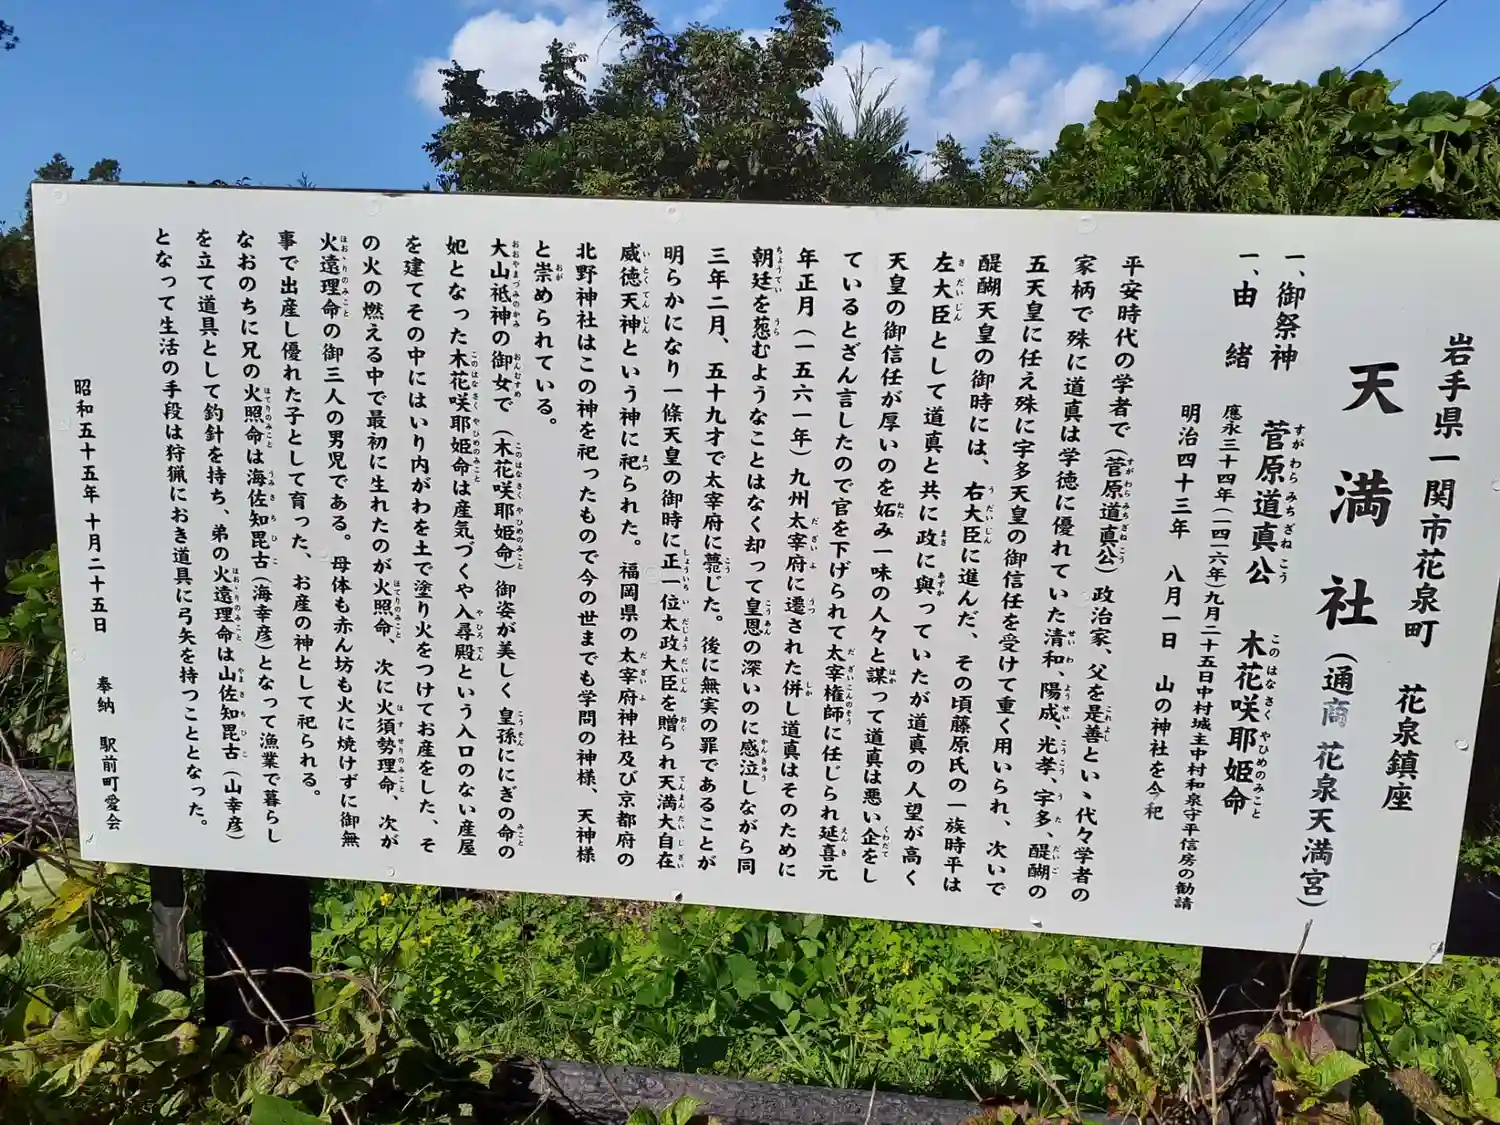 岩手県一関市花泉町　花泉鎮座
天満社（通商 花泉天満宮）
一、御祭神　菅原道真公　木花咲耶姫命
一、由　緒　應永三十四年（一四一六年）九月二十五日中村城主中村和泉守平信房の勧請
明治四十三年　八月一日　山の神社を合祀
平安時代の学者で（菅原道真公）政治家、父を是善といゝ代々学者の
家柄で殊に道真は学徳に優れていた清和、陽成、光孝、宇多、醍醐の
五天皇に任え殊に宇多天皇の御信任を受けて重く用いられ、次いで
醍醐天皇の御時には、右大臣に進んだ、その頃藤原氏の一族時平は
左大臣として道真と共に政に與っていたが道真の人望が高く
天皇の御信任が厚いのを妬み一味の人々と謀って道真は悪い企をし
ているとざん言したので官を下げられて太宰権師に任じられ延喜元
年正月（一五六一年）九州太宰府に遷された併し道真はそのために
朝廷を葱むようなことはなく却って皇恩の深いのに感泣しながら同
三年二月、五十九才で太宰府に薨じた。後に無実の罪であることが
明らかになり一條天皇の御時に正一位太政大臣を贈られ天満大自在
威徳天神という神に祀られた。福岡県の太宰府神社及び京都府の
北野神社はこの神を祀ったもので今の世までも学問の神様、天神様
と崇められている。
大山祇神の御女で（木花咲耶姫命）御姿が美しく皇孫ににぎの命の
妃となった木花咲耶姫命は産気づくや入尋殿という入口のない産屋
を建てその中にはいり内がわを土で塗り火をつけてお産をした、そ
の火の燃える中で最初に生れたのが火照命、次に火須勢理命、次が
火遠理命の御三人の男児である。母体も赤ん坊も火に焼けずに御無
事で出産し優れた子として育った、お産の神として祀られる。
なおのちに兄の火照命は海佐知毘古（海幸彦）となって漁業で暮らし
を立て道具として釣針を持ち、弟の火遠理命は山佐知毘古（山幸彦）
となって生活の手段は狩猟におき道具に弓矢を持つこととなった。
昭和五十五年十月二十五日　奉納　駅前町愛会